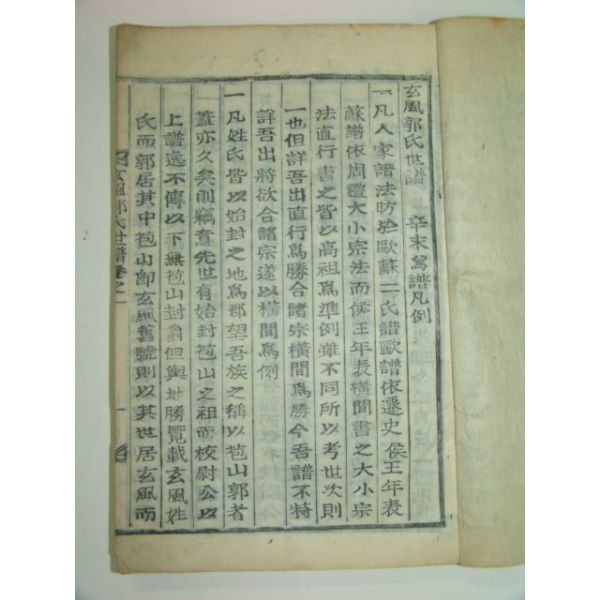 玄風郭氏世譜 上 辛未舊譜凡例
一凡人家譜法昉於歐蘇二氏譜歐譜依遷史侯王年表
蘇譜依周禮大小宗法而侯王年表橫間書之大小宗
法直行書之皆以高祖爲準例雖不同所以考世次則
一也但詳吾出直行爲勝合諸宗橫間爲勝今吾譜不特
詳吾出將欲合諸宗遂以橫間爲例
一凡姓氏皆以始封之地爲郡望吾族之稱以苞山郭者
蓋亦久矣則竊奮先世有始封苞山之祖而校尉公以
上譜逸不傳以下無苞山封爵但輿地勝覽載玄風姓
氏而郭居其中苞山卽玄風舊號則以其世居玄風而
玄風郭氏世譜卷之一
一